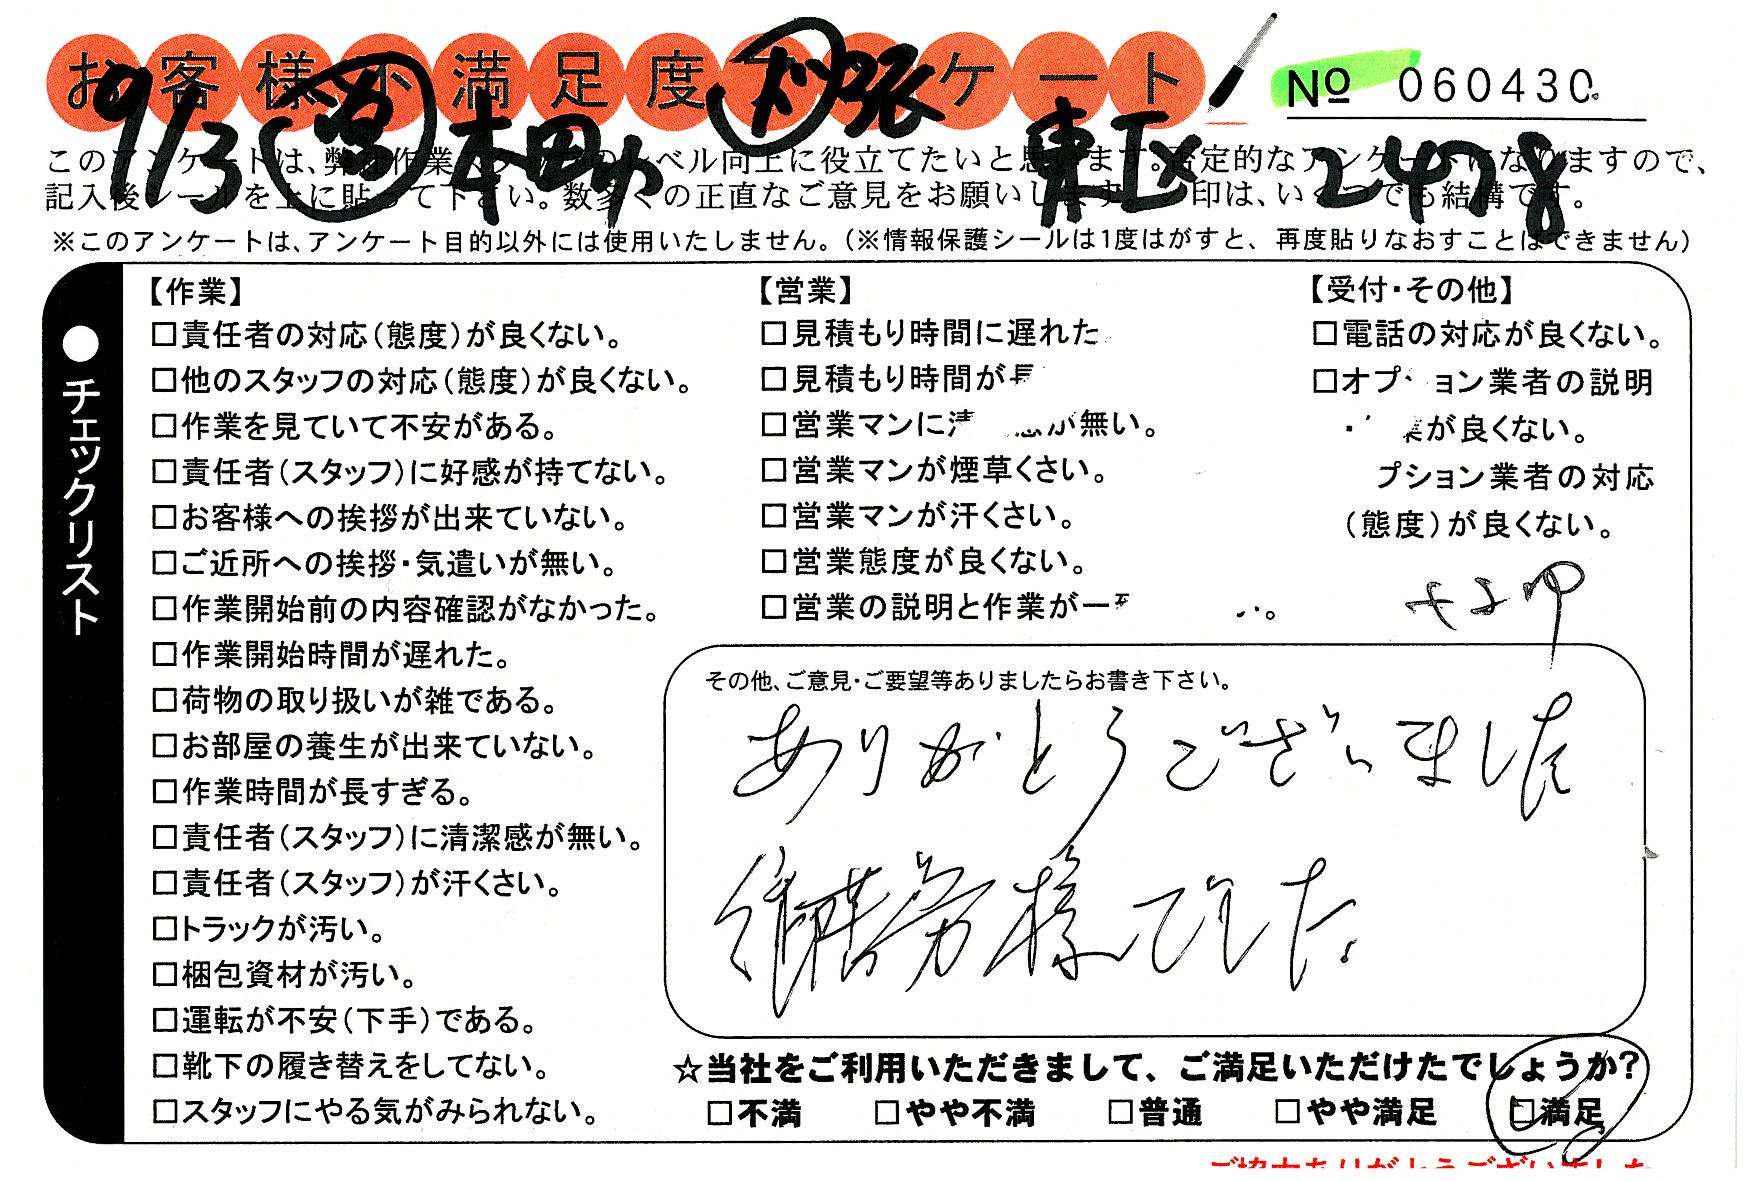 お客様不満足度アンケート
No 060430
9/3 営 本田 東区 2478
このアンケートは、弊社作業スタッフのレベル向上に役立てたいと思います。否定的なアンケートになりますので、
記入後シールを上に貼って下さい。数多くの正直なご意見をお願いします。✓印は、いくつでも結構です。
※このアンケートは、アンケート目的以外には使用いたしません。(※情報保護シールは1度はがすと、再度貼りなおすことはできません)
●チェックリスト
【作業】
□責任者の対応(態度)が良くない。
□他のスタッフの対応(態度)が良くない。
□作業を見ていて不安がある。
□責任者(スタッフ)に好感が持てない。
□お客様への挨拶が出来ていない。
□ご近所への挨拶・気遣いが無い。
□作業開始前の内容確認がなかった。
□作業開始時間が遅れた。
□荷物の取り扱いが雑である。
□お部屋の養生が出来ていない。
□作業時間が長すぎる。
□責任者(スタッフ)に清潔感が無い。
□責任者(スタッフ)が汗くさい。
□トラックが汚い。
□梱包資材が汚い。
□運転が不安(下手)である。
□靴下の履き替えをしてない。
□スタッフにやる気がみられない。
【営業】
□見積もり時間に遅れた
□見積もり時間が長
□営業マンに清 感が無い。
□営業マンが煙草くさい。
□営業マンが汗くさい。
□営業態度が良くない。
□営業の説明と作業が一
【受付・その他】
□電話の対応が良くない。
□オプション業者の説明
が良くない。
プション業者の対応
(態度)が良くない。
その他、ご意見・ご要望等ありましたらお書き下さい。
ありがとうございました
御苦労様でした。
☆当社をご利用いただきまして、ご満足いただけたでしょうか?
□不満 □やや不満 □普通 □やや満足 □満足
ご協力ありがとうございました